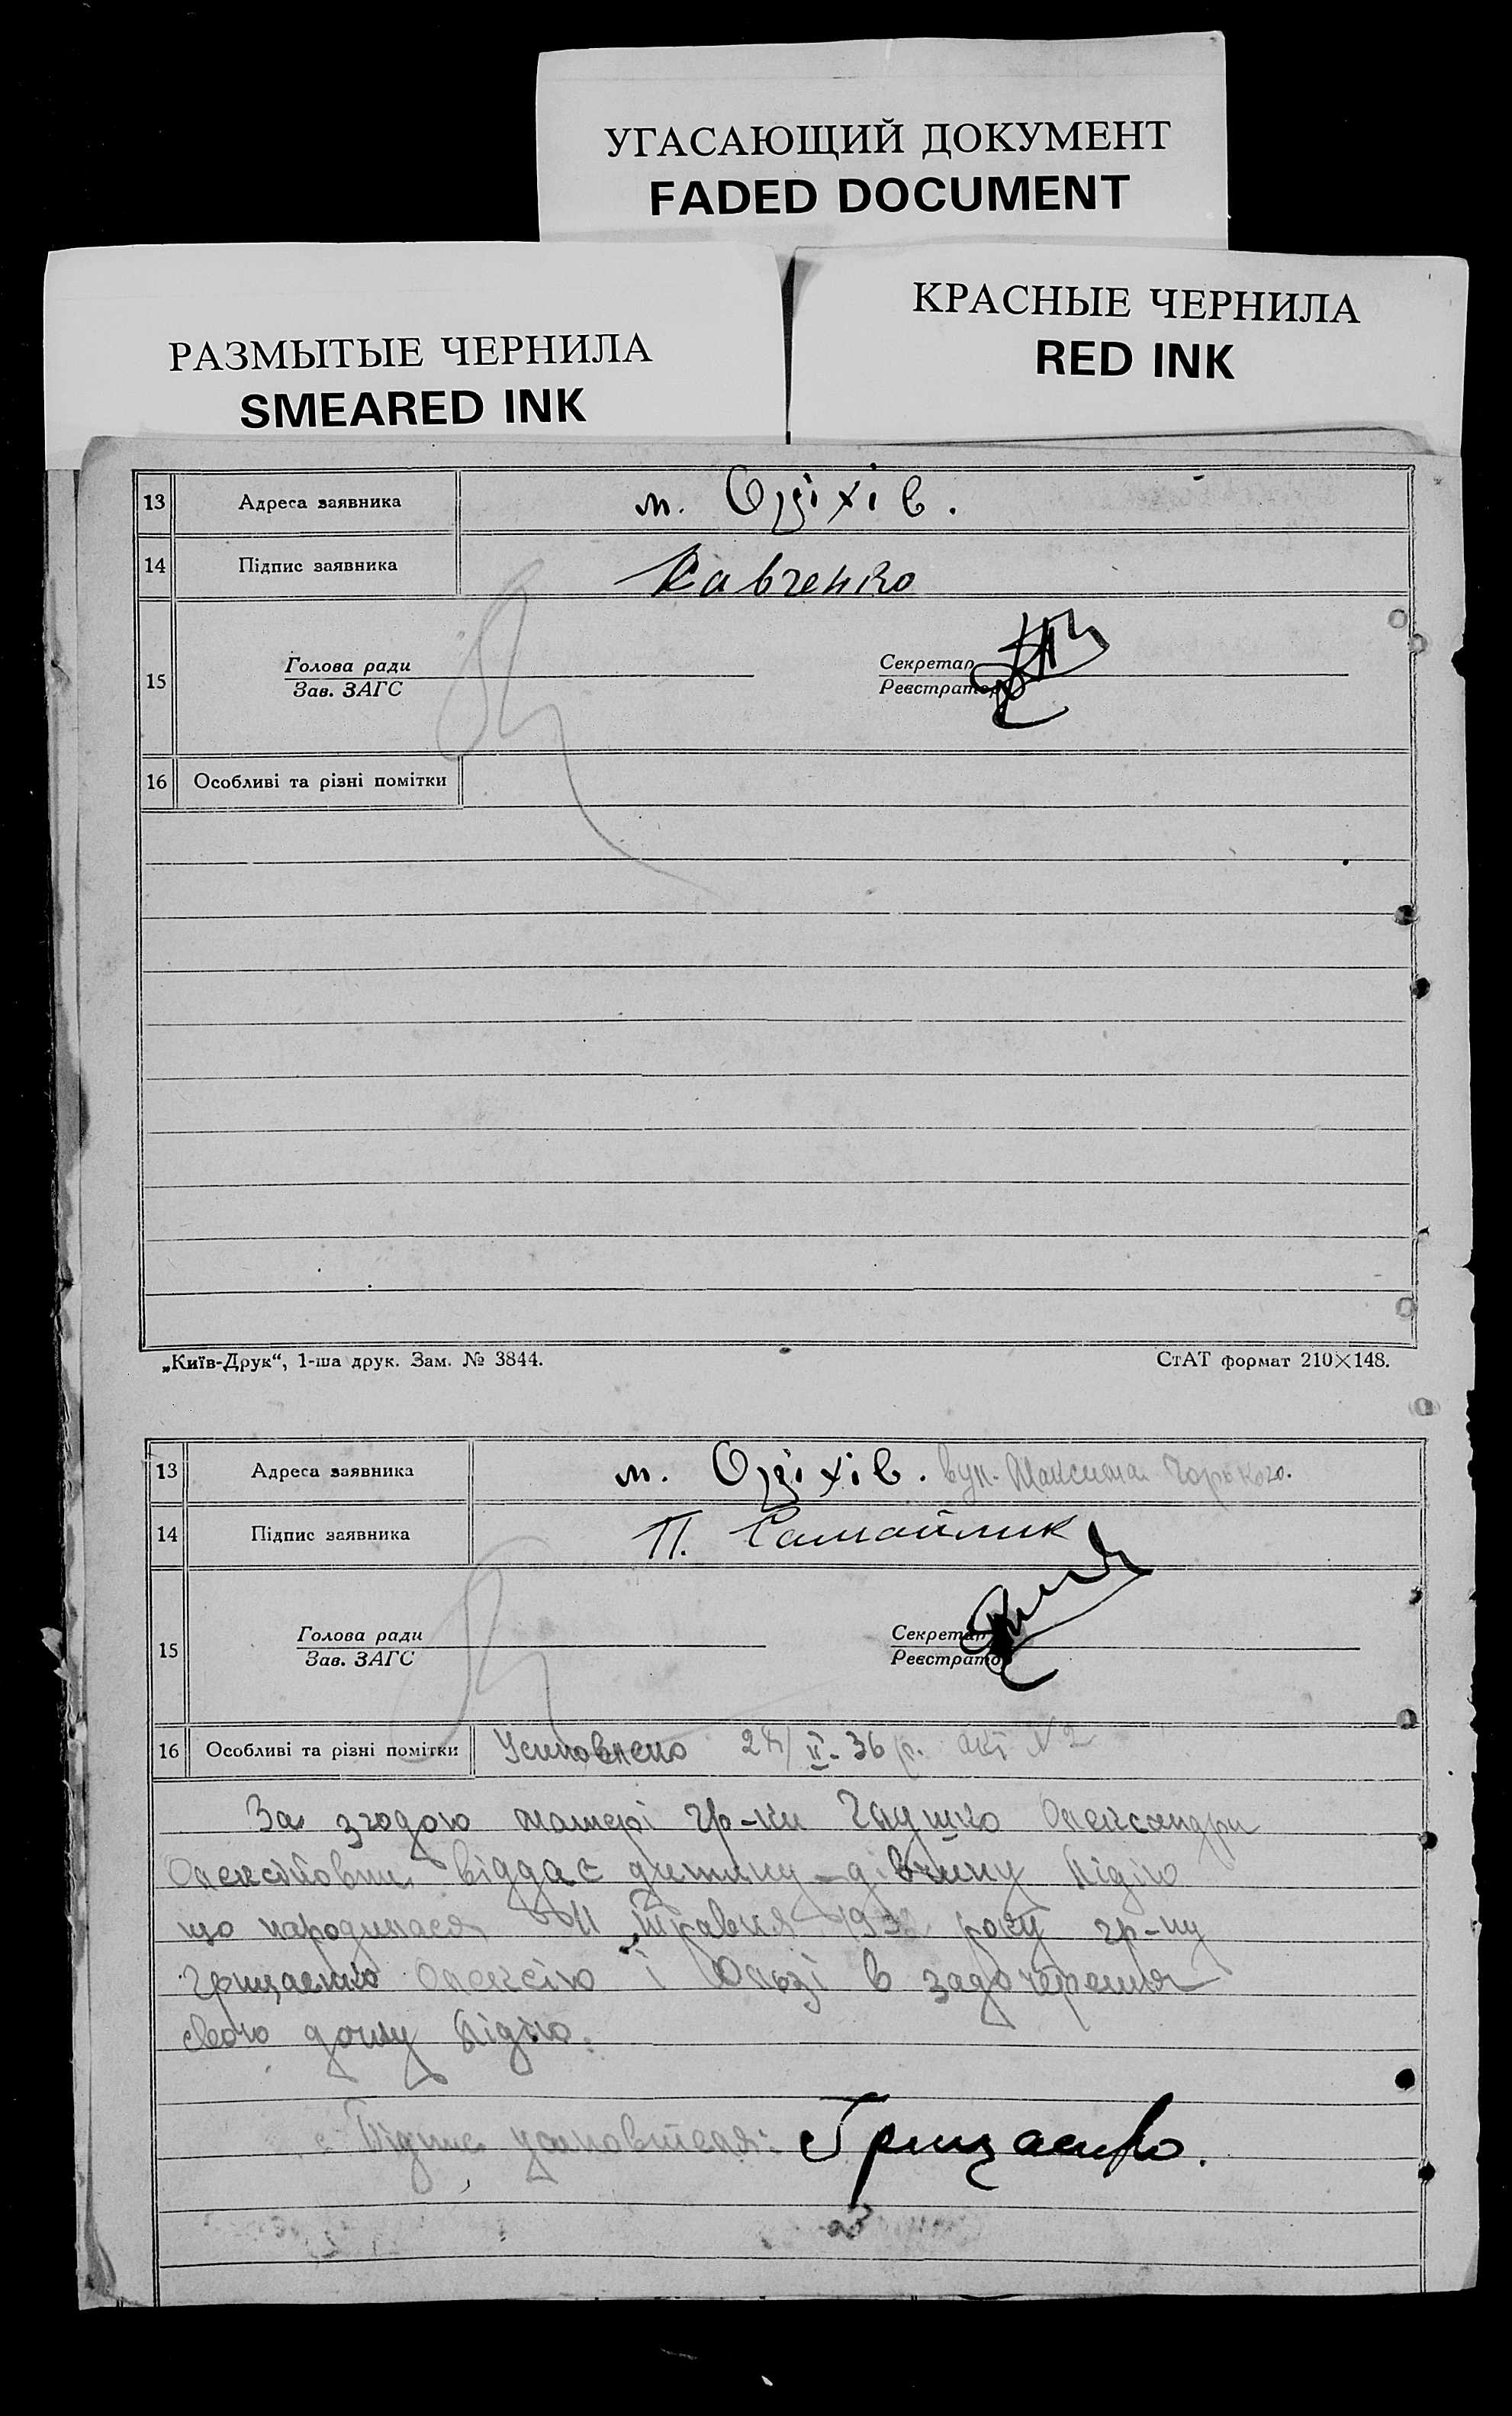 УГАСАЮЩИЙ ДОКУМЕНТ
FADED DOCUMENT
РАЗМЫТЫЕ ЧЕРНИЛА
SMEARED INK
КРАСНЫЕ ЧЕРНИЛА
RED INK
13 Адреса заявника м. Оріхів.
14 Підпис заявника Кавченко
15 Голова ради Секретар
Зав. ЗАГС Реєстратор
16 Особливі та різні помітки
„Київ-Друк“, 1-ша друк. Зам. № 3844. СтАТ формат 210×148.
13 Адреса заявника м. Оріхів. вул. Максима Горького.
14 Підпис заявника П. Самойлик
15 Голова ради Секретар
Зав. ЗАГС Реєстратор
16 Особливі та різні помітки Усиновлено 24/II-36 р. акт №2
За згодою матері гр-ки Олександри
Олексіївни віддає дитину-дівчину Лідію
що народилася 11 травня 193 року гр-ну
Грицаенко Олексію і Ользі в задочерення
свою дочку Лідію.
Підпис усиновителя: Грицаенко.